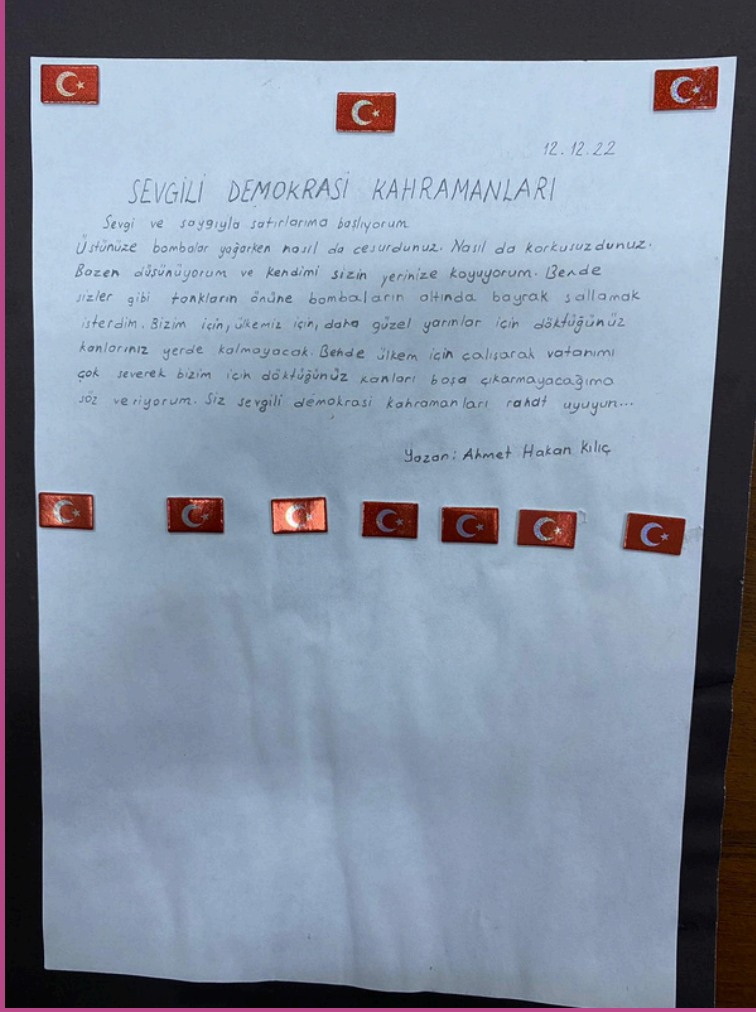 12.12.22
SEVGİLİ DEMOKRASİ KAHRAMANLARI
Sevgi ve saygıyla satırlarıma başlıyorum
Üstünüze bombalar yağarken nasıl da cesurdunuz. Nasıl da korkusuzdunuz.
Bazen düşünüyorum ve kendimi sizin yerinize koyuyorum. Bende
sizler gibi tankların önüne bombaların altında bayrak sallamak
isterdim. Bizim için, ülkemiz için, daha güzel yarınlar için döktüğünüz
kanlarınız yerde kalmayacak. Bende ülkem için çalışarak vatanımı
çok severek bizim için döktüğünüz kanları boşa çıkarmayacağıma
söz veriyorum. Siz sevgili demokrasi kahramanları rahat uyuyun...
Yazan: Ahmet Hakan Kılıç